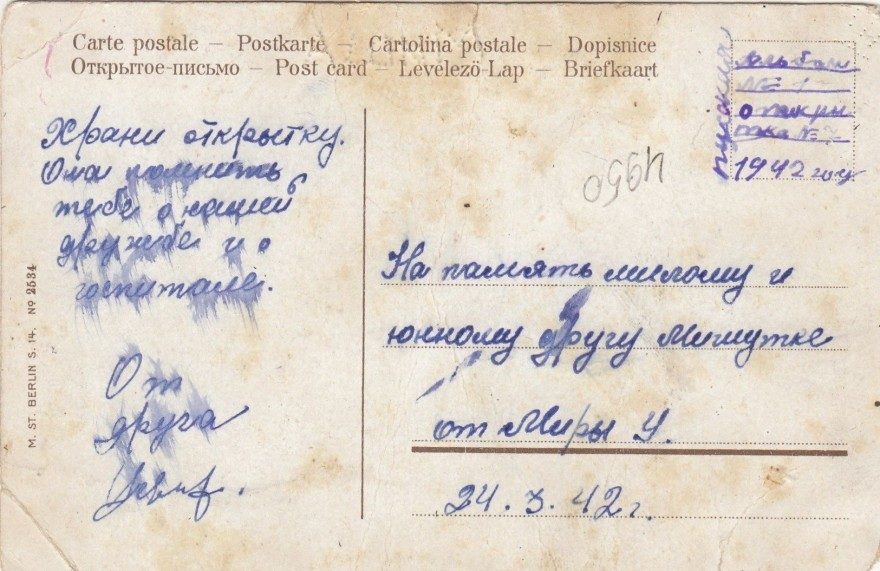 Carte postale – Postkarte – Cartolina postale – Dopisnice
Открытое-письмо – Post card – Levelező-Lap – Briefkaart
Храни открытку.
Она помнить
тебе о нашей
дружбе и о
госпитале.
От
друга
M. ST. BERLIN S. 14. № 2534
4950
Альбом
№ 1
откры
тка № 7
1942 году
На память милому и
юнному другу Мишутке
от Миры У.
24.3.42 г.